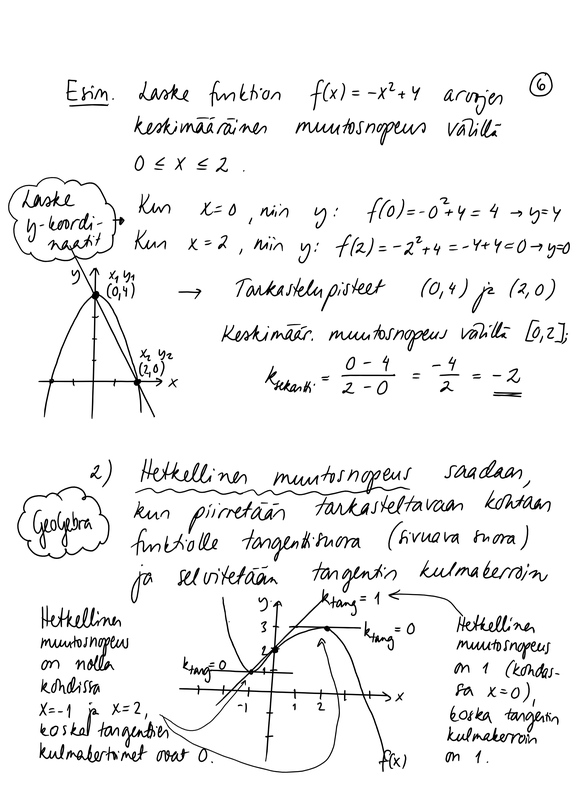 Esim. Laske funktion f(x) = -x²+4 arvojen
⑥
keskimääräinen muutosnopeus välillä
0 ≤ x ≤ 2.
Laske
y-koordi-
naatit
Kun x=0, niin y: f(0)=-0²+4 = 4 → y=4
Kun x=2, niin y: f(2)=-2²+4=-4+4=0→y=0
y
x₁ y₁
(0,4)
x₂ y₂
(2,0)
x
→ Tarkastelupisteet (0,4) ja (2,0)
Keskimäär. muutosnopeus välillä [0,2]:
k_sekantti = (0-4)/(2-0) = -4/2 = -2
2) Hetkellinen muutosnopeus saadaan,
GeoGebra
kun piirretään tarkasteltavaan kohtaan
funktiolle tangenttisuora (sivuava suora)
ja selvitetään tangentin kulmakerroin
Hetkellinen
muutosnopeus
on nolla
kohdissa
x=-1 ja x=2,
koska tangenttien
kulmakertoimet ovat 0.
y
k_tang = 1
k_tang = 0
k_tang = 0
3
2
-1
1
2
x
f(x)
Hetkellinen
muutosnopeus
on 1 (kohdas-
sa x=0),
koska tangentin
kulmakerroin
on 1.